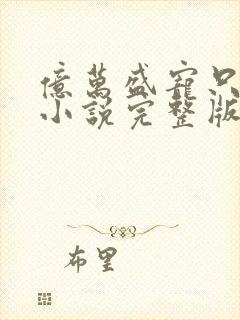 億萬盛寵只
小說完整版
布里